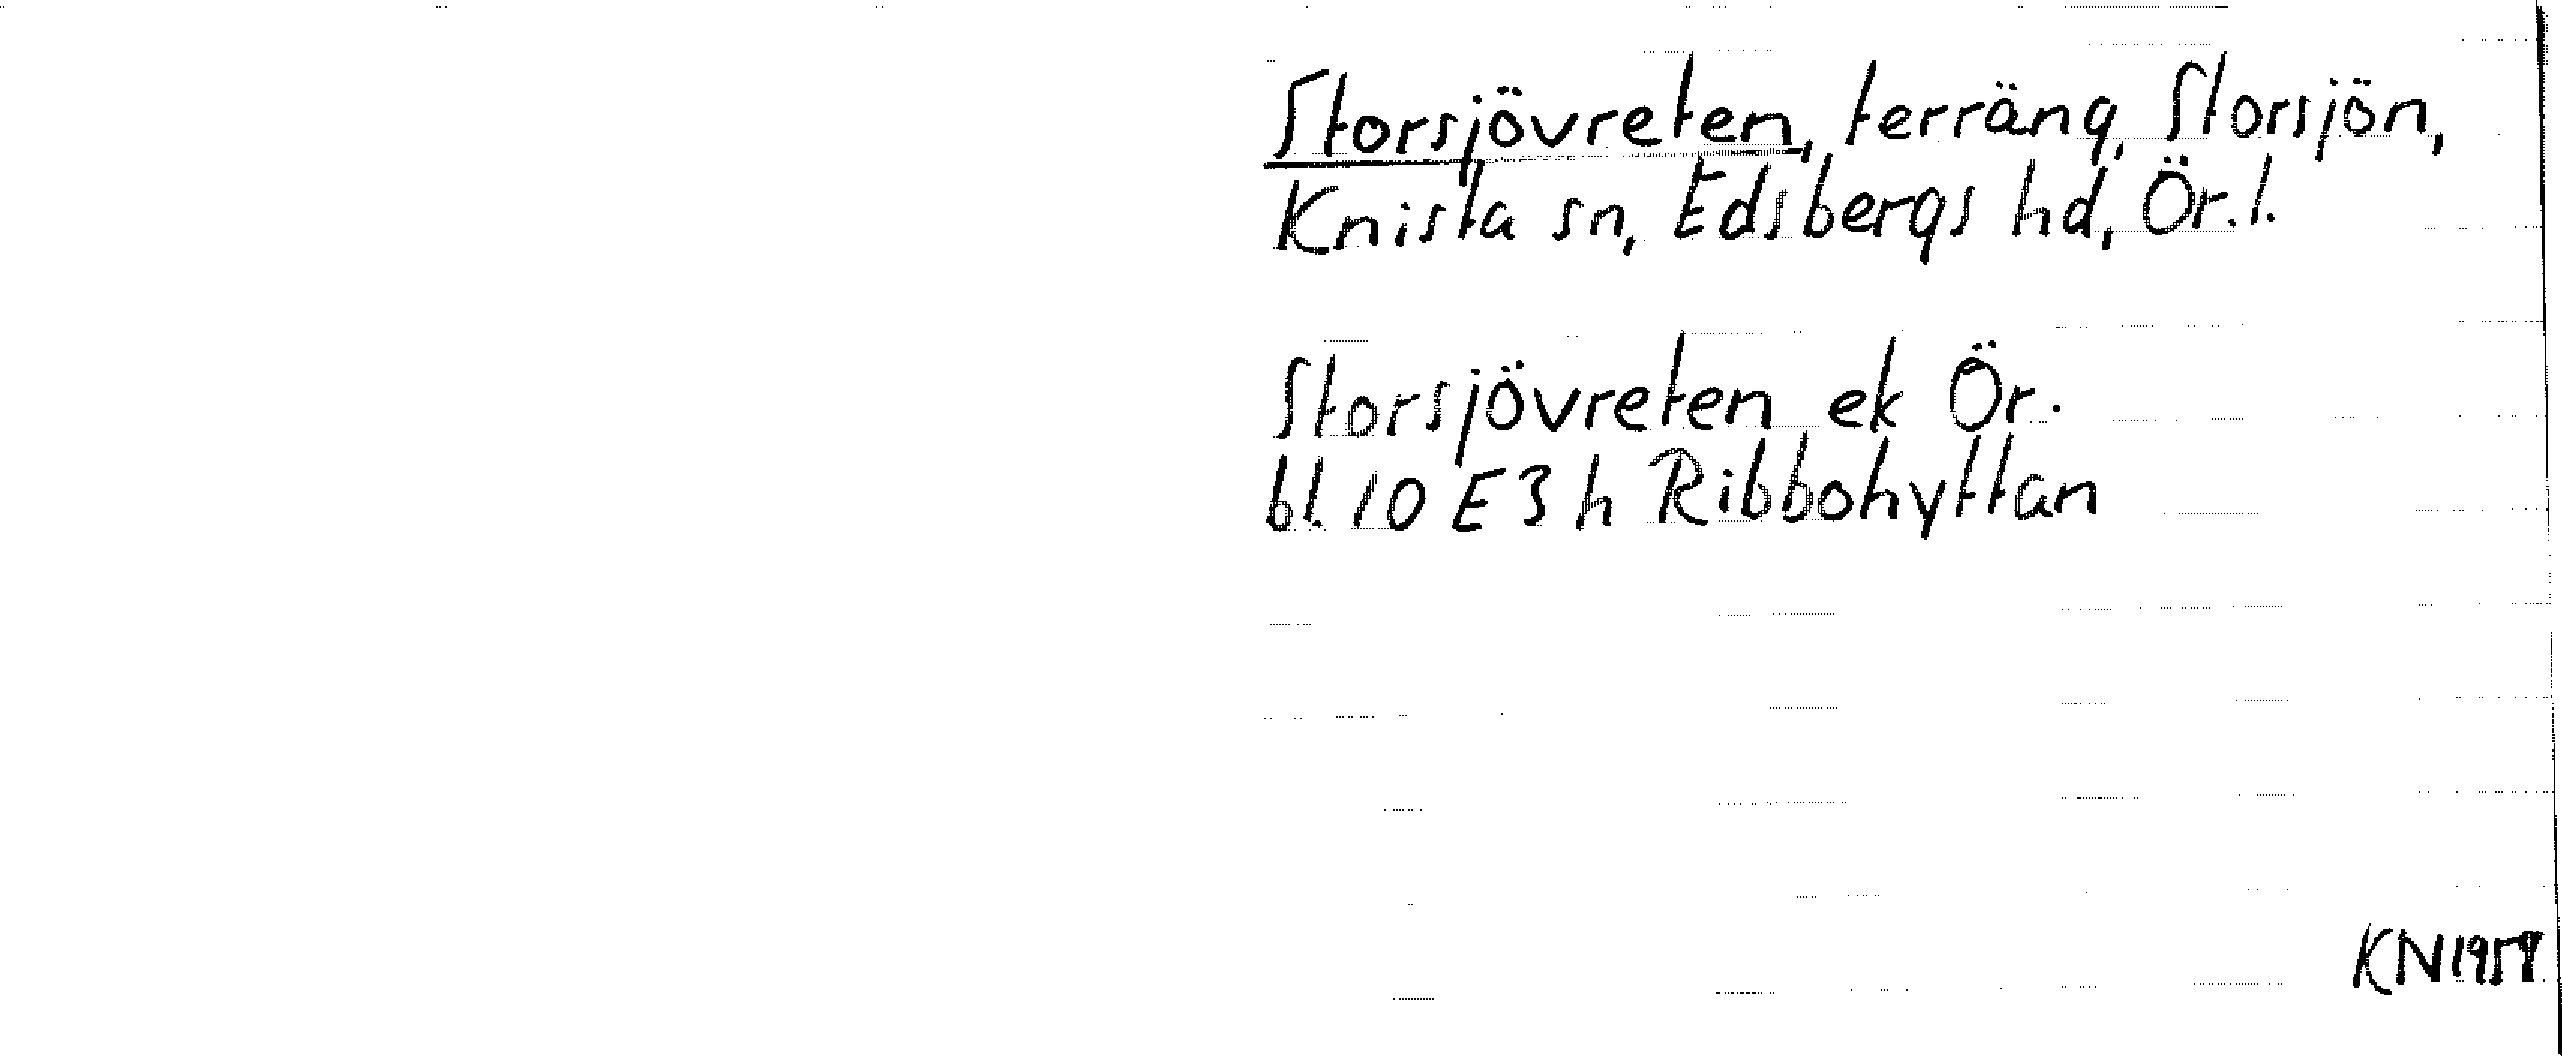 Storsjövreten, terräng, Storsjön,
Knista sn, Edsbergs hd, Ör.l.
Storsjövreten ek Ör.
bl. 10 E 3 h Ribbohyttan
KN